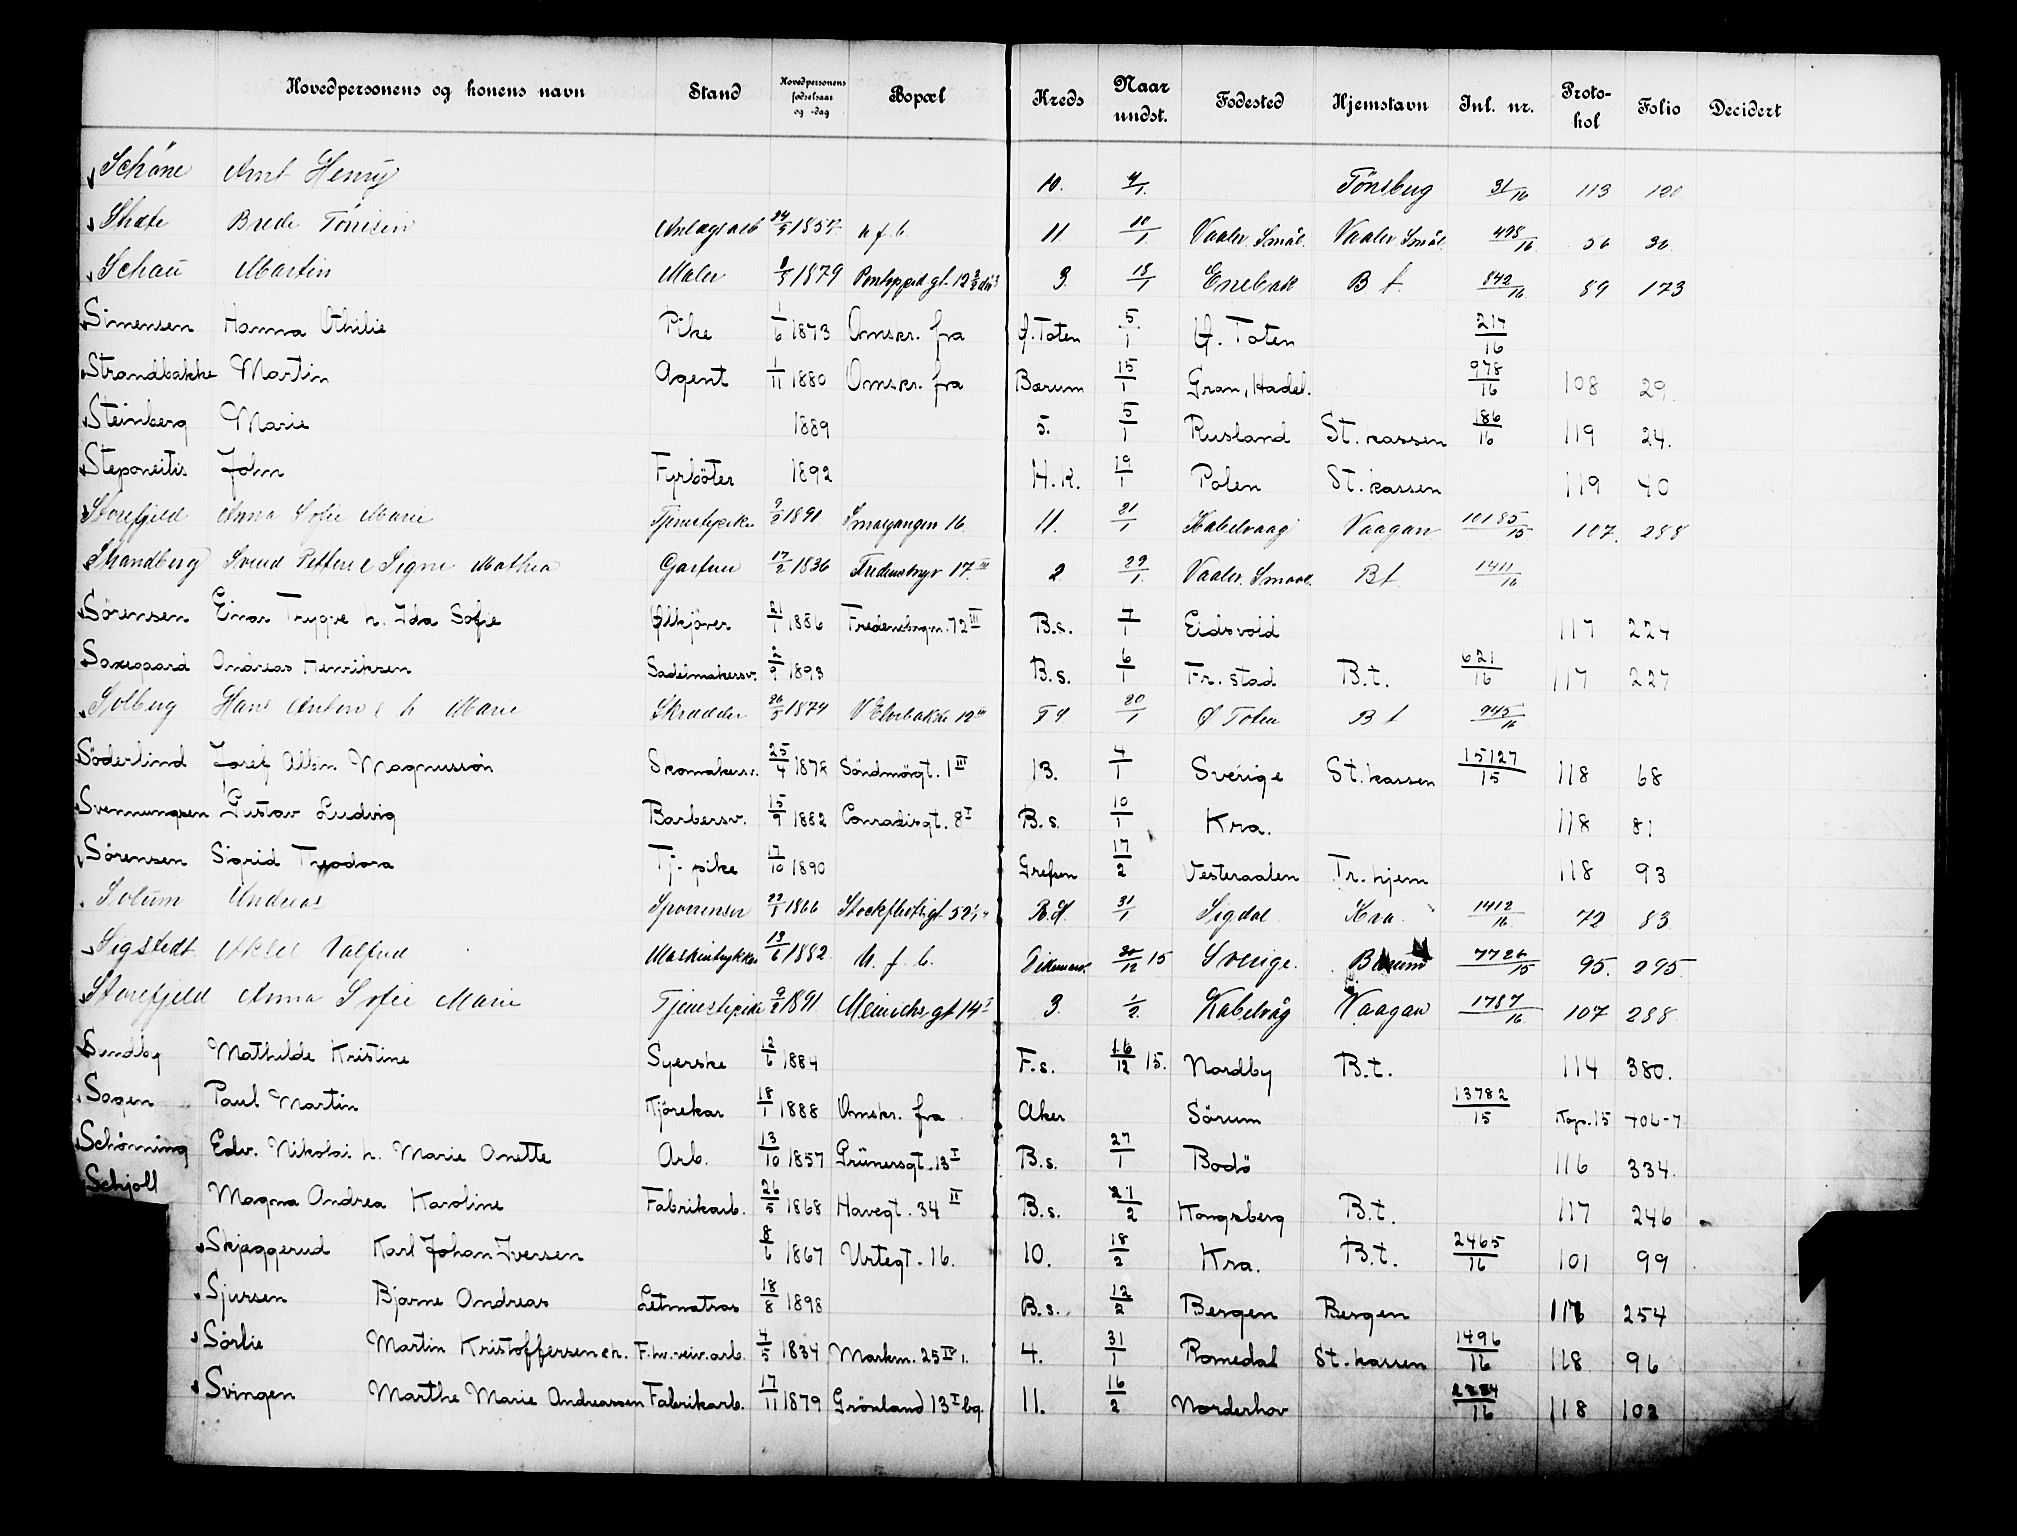 Hovedpersonens og konens navn Stand Hovedpersonens fødselsaar og -dag Bopæl Kreds Naar undst. Fødested Hjemstavn Inl. nr. Protokol Folio Decidert
Schöne Arnt Henry 10. 4/1. Tönsberg 31/16 113 120
Skate Brede Tönisen Anlægsarb 24/5 1857 u f b. 11 10/1 Vaaler Smål. Vaaler Smål. 498/16 56 30
Schau Martin Maler 1879 3. 18/1 Enebak B t. 842/16 89 173
Simensen Hanna Othilie Pike 1/6 1873 Omskr. fra Ø. Toten 5/1 Ø. Toten 217/16
Strandbakke Martin Agent 1/11 1880 Omskr. fra Bærum 15/1 Gran, Hadel. 978/16 108 29.
Steinberg Marie 1889 5. 5/1 Rusland St. kassen 186/16 119 24.
Steponeitis John Fyrböter 1892 H.K. 19/1 Polen St. kassen 119 40
Storefjeld Anna Sofie Marie Tjenestepike 9/2 1891 Smalgangen 16 11. 21/1 Kabelvaag Vaagan 10185/15 107. 288
Strandberg Svend Petter e Signe Mathea Gartner 17/2 1836 Fredensbgv 17 III 2 29/1. Vaaler. Smaal. B t. 1411/16
Sörensen Einar Trygve h. Ida Sofie Ølkjörer 21/1 1886 Fredensbgv. 72 III B.s. 4/1 Eidsvold 117 224
Saxegaard Andreas Henriksen Sadelmakersv. 2/9 1893 B.s. 6/1 Fr. stad B.t. 621/16 117 227
Solberg Hans Anton e h Marie Skrædder 26/5 1874 V Elvebakke 12 III F S 20/1 Ø Toten B t 945/16
Söderlind Josef Albin Magnussön Skomakersv. 25/4 1878 Söndmörgt. 1 III 13. 4/1 Sverige St. kassen 15127/15 118 68
Svennungsen Gustav Ludvig Barbersv. 15/9 1882 Conradisgt. 8 I B.s. 10/1 Kra. 118 81
Sörensen Sigrid Theodora Tj. pike 17/10 1890 Grefsen 17/2 Vesteraalen Tr. hjem 118 93
Solum Andreas Sporrenser 22/1 1866 Stockfletsgt 52 R.H. 31/1 Sigdal Kra. 1412/16 72 83
Sigstedt Aksel Valfrid Maskintrykker 13/6 1882. U. f. b. 30/12 15 Sverige. Bærum 7726/15 95. 295
Storefjeld Anna Sofie Marie Tjenestepike 9/2 1891. Meinichsgt 14 I 3. 1/2. Kabelvåg Vaagan 1787/16 107 288
Sundby Mathilde Kristine Syerske 12/6 1884 F.s. 16/12 15. Nordby B.t. 114 380.
Sagen Paul Martin Kjörekar 18/1 1888 Omskr. fra Aker Sörum 13782/15 Kop. 15 706-7
Schönning Edv. Nikolai h. Marie Anette Arb. 13/10 1857 Grünersgt. 13 I B.s. 27/1 Bodö 116 334.
Schjoll Magna Andrea Karoline Fabrikarb. 26/5 1868 Havegt. 34 II B.s. 21/2 Kongsberg B.t. 117 246
Skjæggerud Karl Johan Iversen 8/6 1867 Urtegt. 16. 10. 18/2 Kra. B.t. 2465/16 101 99
Sjursen Bjarne Andreas Letmatros 18/8 1898 B.s. 12/2 Bergen Bergen 254
Sörlie Martin Kristoffersen e h. F. hv. veiv. arb. 4/5 1834 Markv. 25 IV 1. 4. 31/1 Romedal St. kassen 1496/16 118 96
Svingen Marthe Marie Andreassen Fabrikarb. 17/11 1879 Grönland 13 I bg. 11. 16/2 Norderhov 2284/16 118 102